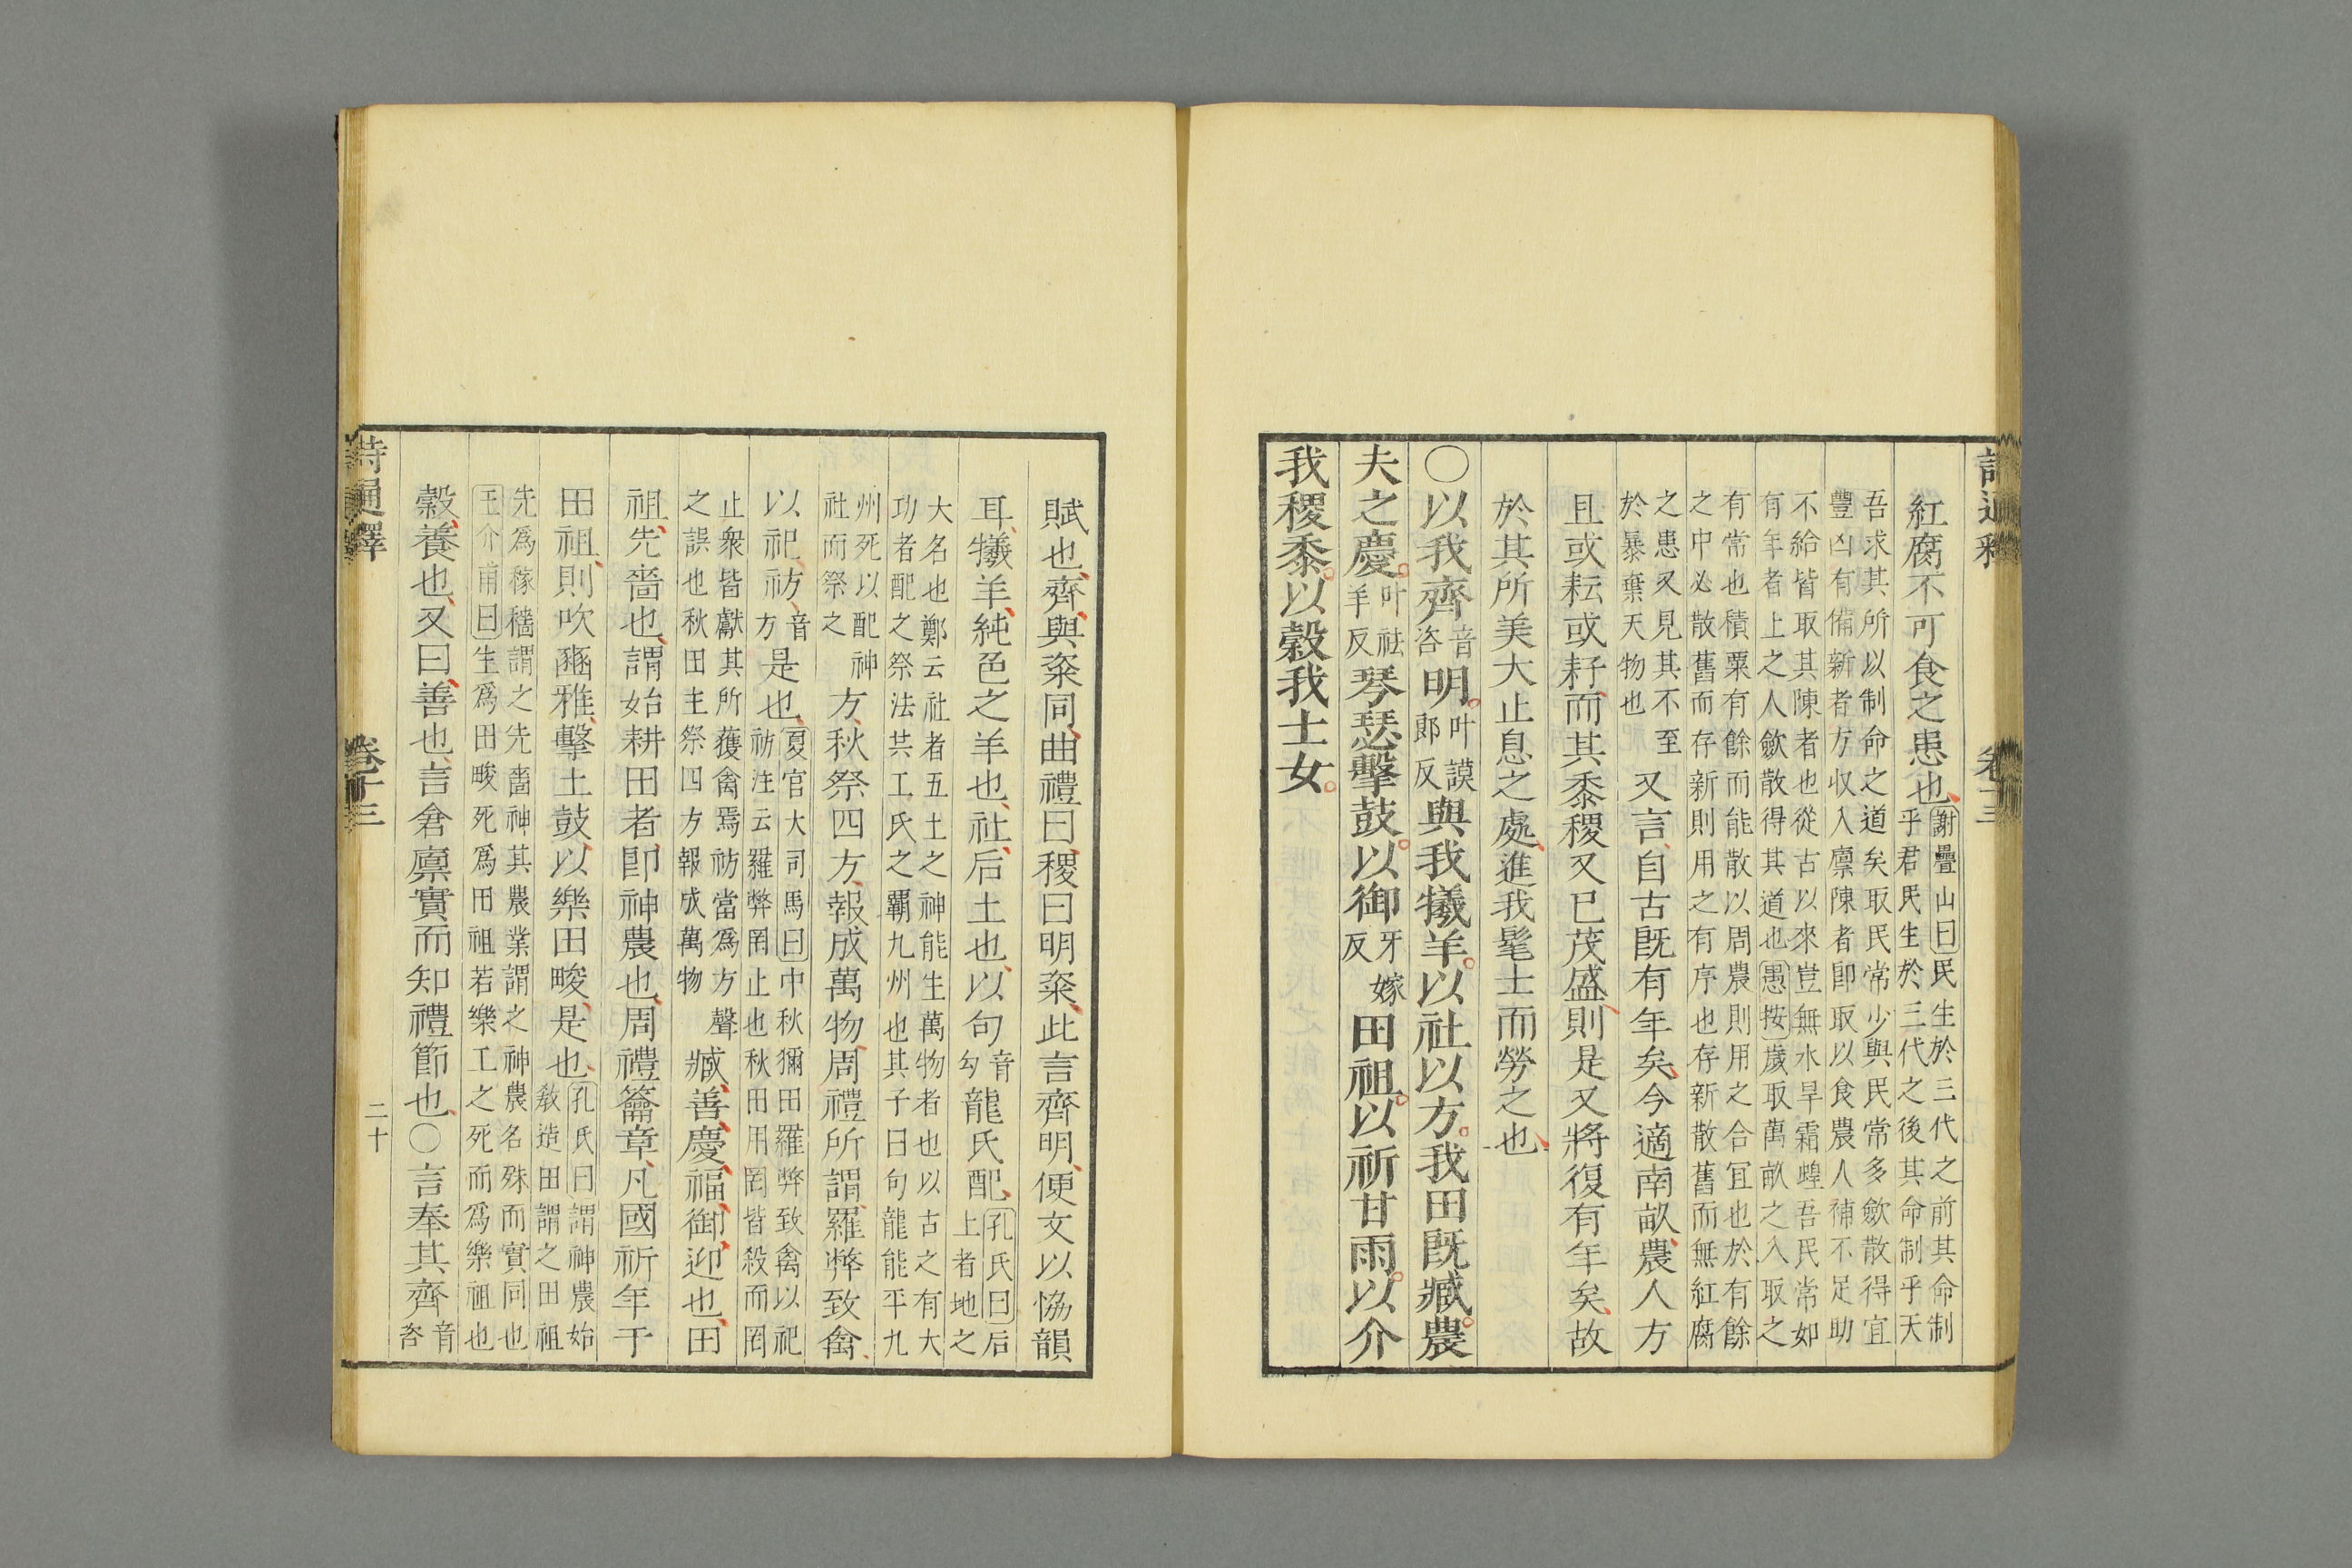 詩通釋 卷十三
紅腐不可食之患也謝疊山曰民生於三代之前其命制
乎君民生於三代之後其命制乎天
吾求其所以制命之道矣取民常少與民常多斂散得宜
豐凶有備新者方収入廩陳者卽取以食農人補不足助
不給皆取其陳者也從古以來豈無水旱霜蝗吾民常如
有年者上之人斂散得其道也愚按歲取萬畝之入取之
有常也積粟有餘而能散以周農則用之合宜也於有餘
之中必散舊而存新則用之有序也存新散舊而無紅腐
之患又見其不至
於暴棄天物也
又言自古旣有年矣今適南畝農人方
且或耘或耔而其黍稷又已茂盛則是又將復有年矣故
於其所美大止息之處進我髦士而勞之也
○以我齊音咨明叶謨郎反與我犧羊以社以方我田旣臧農
夫之慶叶祛羊反琴瑟擊鼓以御牙嫁反田祖以祈甘雨以介
我稷黍以穀我士女
賦也齊與粢同曲禮曰稷曰明粢此言齊明便文以恊韻
耳犧羊純色之羊也社后土也以句音勾龍氏配孔氏曰后
土者地之
大名也鄭云社者五土之神能生萬物者也以古之有大
功者配之祭法共工氏之覇九州也其子曰句龍能平九
州死以配神
社而祭之
方秋祭四方報成萬物周禮所謂羅弊致禽
以祀祊音方是也夏官大司馬曰中秋獮田羅弊致禽以祀
祊注云羅弊罔止也秋田用罔皆殺而罔
止衆皆獻其所獲禽焉祊當爲方聲
之誤也秋田主祭四方報成萬物
臧善慶福御迎也田
祖先嗇也謂始耕田者卽神農也周禮籥章凡國祈年于
田祖則吹豳雅擊土鼓以樂田畯是也孔氏曰謂神農始
敎造田謂之田祖
先爲稼穡謂之先嗇神其農業謂之神農名殊而實同也
王介甫曰生爲田畯死爲田祖若樂工之死而爲樂祖也
穀養也又曰善也言倉廩實而知禮節也○言奉其齊音咨
詩通釋 卷十三 二十